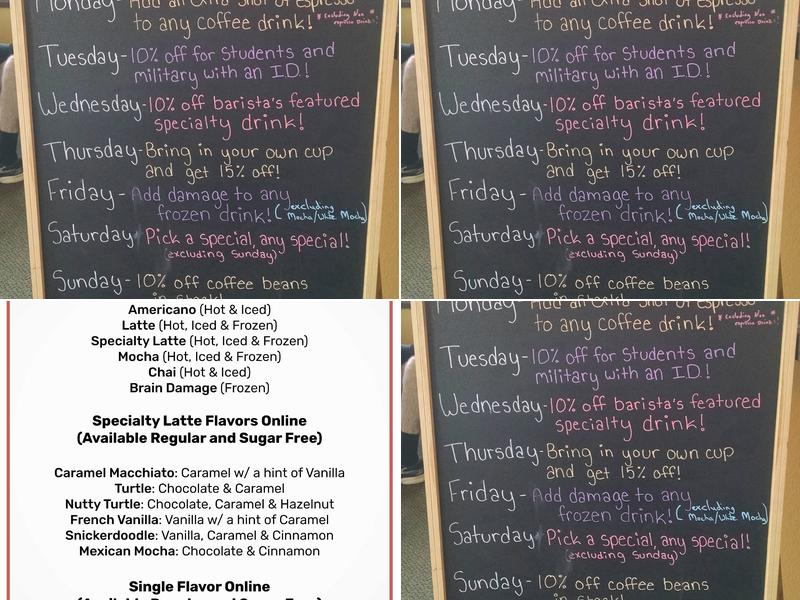 Monday- Add an Extra Shot of Espresso
to any coffee drink! * Excluding Non
espresso Drinks!
Tuesday- 10% off for Students and
military with an I.D.!
Wednesday- 10% off barista's featured
specialty drink!
Thursday- Bring in your own cup
and get 15% off!
Friday- Add damage to any
frozen drink! (excluding
Mocha/White Mocha)
Saturday- Pick a special, any special!
(excluding Sunday)
Sunday- 10% off coffee beans
in stock!
Monday- Add an Extra Shot of Espresso
to any coffee drink! * Excluding Non
espresso Drinks!
Tuesday- 10% off for Students and
military with an I.D.!
Wednesday- 10% off barista's featured
specialty drink!
Thursday- Bring in your own cup
and get 15% off!
Friday- Add damage to any
frozen drink! (excluding
Mocha/White Mocha)
Saturday- Pick a special, any special!
(excluding Sunday)
Sunday- 10% off coffee beans
Americano (Hot & Iced)
Latte (Hot, Iced & Frozen)
Specialty Latte (Hot, Iced & Frozen)
Mocha (Hot, Iced & Frozen)
Chai (Hot & Iced)
Brain Damage (Frozen)
Specialty Latte Flavors Online
(Available Regular and Sugar Free)
Caramel Macchiato: Caramel w/ a hint of Vanilla
Turtle: Chocolate & Caramel
Nutty Turtle: Chocolate, Caramel & Hazelnut
French Vanilla: Vanilla w/ a hint of Caramel
Snickerdoodle: Vanilla, Caramel & Cinnamon
Mexican Mocha: Chocolate & Cinnamon
Single Flavor Online
(Available Regular and Sugar Free)
Monday- Add an Extra Shot of Espresso
to any coffee drink! * Excluding Non
espresso Drinks!
Tuesday- 10% off for Students and
military with an I.D.!
Wednesday- 10% off barista's featured
specialty drink!
Thursday- Bring in your own cup
and get 15% off!
Friday- Add damage to any
frozen drink! (excluding
Mocha/White Mocha)
Saturday- Pick a special, any special!
(excluding Sunday)
Sunday- 10% off coffee beans
in stock!